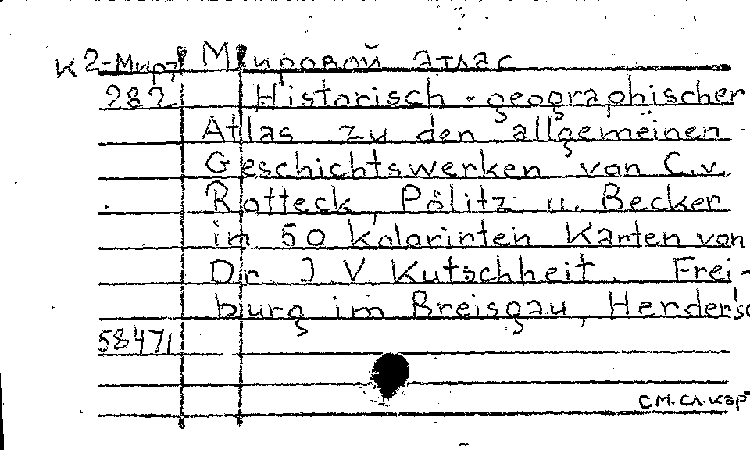 К 2-Мир Мировой атлас
282 Historisch-geographischer
Atlas zu den allgemeinen
Geschichtswerken von C.v.
Rotteck, Pölitz u. Becker
in 50 kolorirten Karten von
Dr. J V Kutschheit. Frei-
burg im Breisgau, Herder'sc
58471
см.сл.кар